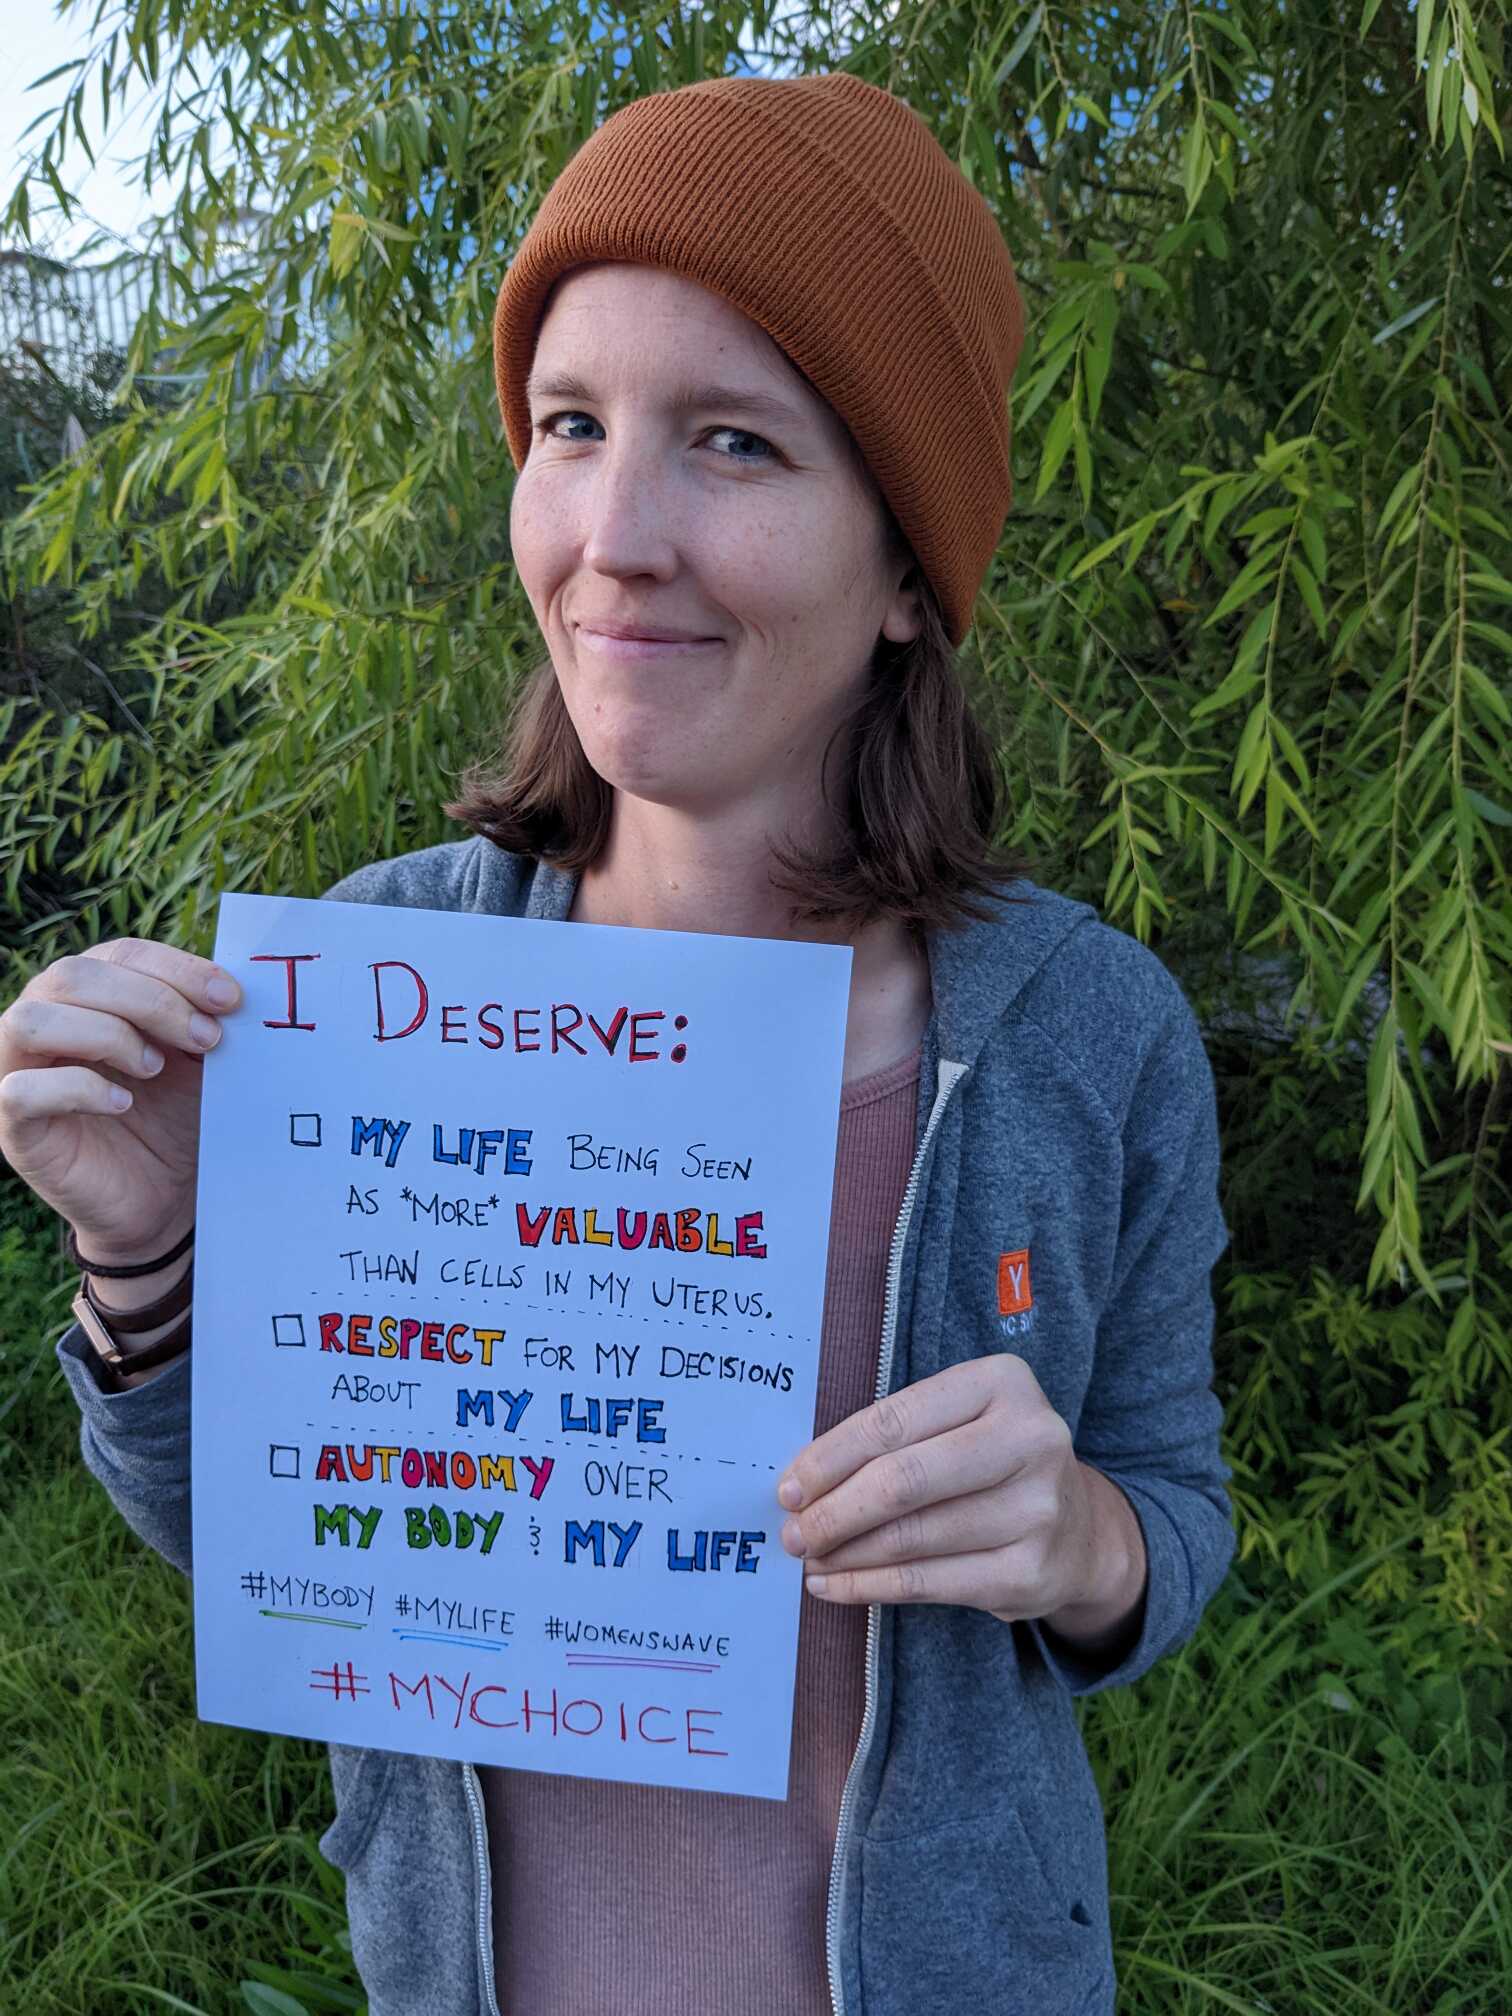 I DESERVE:
MY LIFE BEING SEEN
AS *MORE* VALUABLE
THAN CELLS IN MY UTERUS.
RESPECT FOR MY DECISIONS
ABOUT MY LIFE
AUTONOMY OVER
MY BODY & MY LIFE
#MYBODY #MYLIFE #WOMENSWAVE
#MYCHOICE
Y